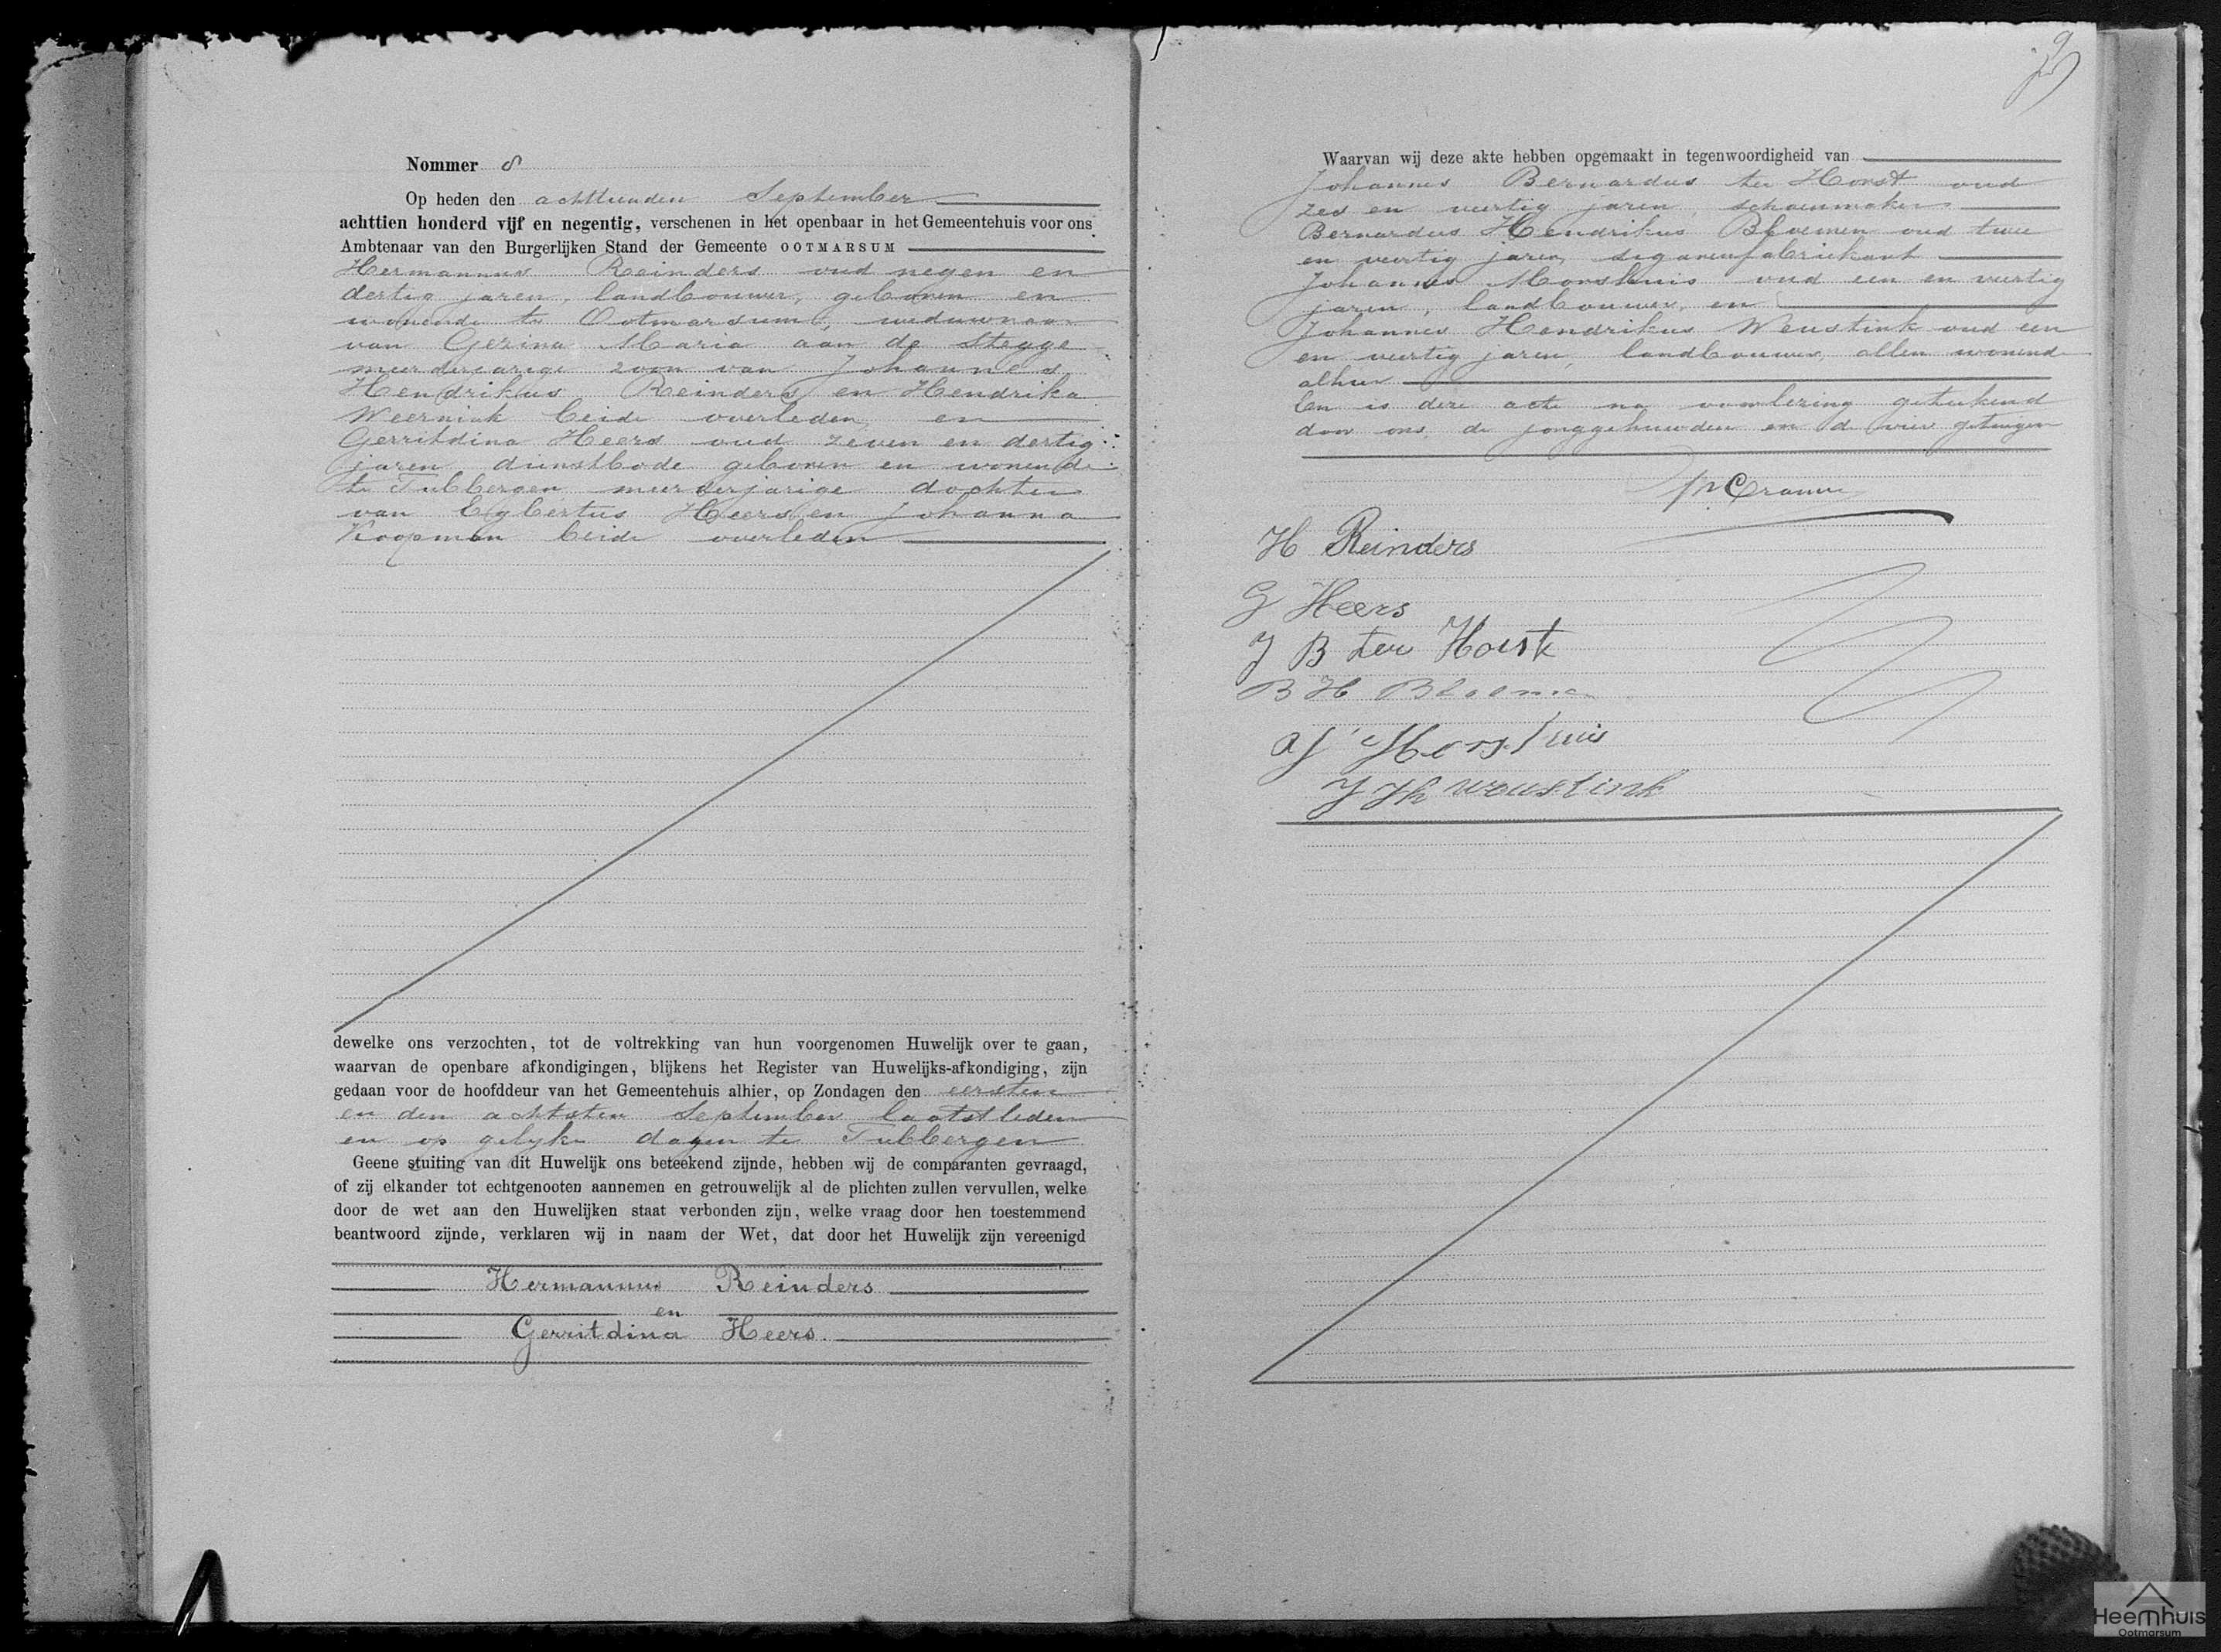 Nommer 8
Op heden den achttienden September
achttien honderd vijf en negentig, verschenen in het openbaar in het Gemeentehuis voor ons
Ambtenaar van den Burgerlijken Stand der Gemeente OOTMARSUM
Hermannus Reinders oud negen en
dertig jaren, landbouwer, geboren en
wonende te Ootmarsum, weduwnaar
van Gezina Maria aan de Stegge
meerderjarige zoon van Johannes
Hendrikus Reinders en Hendrika
Weernink beide overleden, en
Gerritdina Heers oud zeven en dertig
jaren, dienstbode geboren en wonende
te Tubbergen meerderjarige dochter
van Egbertus Heers en Johanna
Koopman beide overleden
dewelke ons verzochten, tot de voltrekking van hun voorgenomen Huwelijk over te gaan,
waarvan de openbare afkondigingen, blijkens het Register van Huwelijks-afkondiging, zijn
gedaan voor de hoofddeur van het Gemeentehuis alhier, op Zondagen den eersten
en den achtsten September laatstleden
en op gelyke dagen te Tubbergen
Geene stuiting van dit Huwelijk ons beteekend zijnde, hebben wij de comparanten gevraagd,
of zij elkander tot echtgenooten aannemen en getrouwelijk al de plichten zullen vervullen, welke
door de wet aan den Huwelijken staat verbonden zijn, welke vraag door hen toestemmend
beantwoord zijnde, verklaren wij in naam der Wet, dat door het Huwelijk zijn vereenigd
Hermannus Reinders
en
Gerritdina Heers.
9
Waarvan wij deze akte hebben opgemaakt in tegenwoordigheid van
Johannes Bernardus ter Horst oud
zes en veertig jaren, schoenmaker
Bernardus Hendrikus Bloemen oud twee
en veertig jaren, sigarenfabriekant
Johannes Morshuis oud een en veertig
jaren, landbouwer, en
Johannes Hendrikus Weustink oud een
en veertig jaren, landbouwer, allen wonende
alhier
En is deze acte na voorlezing geteekend
door ons, de jonggehuwden en de vier getuigen
Cramer
H Reinders
G Heers
J B ter Horst
B H Bloemen
Morshuis
J H Weustink
Heemhuis
Ootmarsum